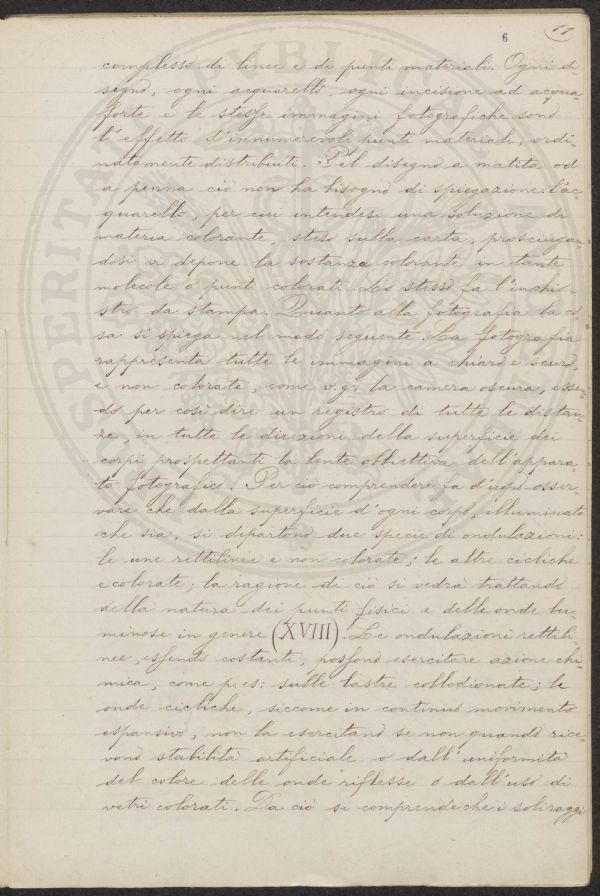 6 11
complesso di linee e di punti materiali. Ogni di-
segno, ogni acquarello, ogni incisione ad acqua-
forte e le stesse immagini fotografiche sono
l'effetto d'innumerevoli punti materiali, ordi-
natamente distribuiti. Pel disegno a matita od
a penna ciò non ha bisogno di spiegazione: l'ac-
quarello, per cui intendesi una soluzione di
materia colorante, steso sulla carta, prosciugan-
dosi vi depone la sostanza colorante in tante
molecole o punti colorati. Lo stesso fa l'inchio-
stro da stampa. Quanto alla fotografia la co-
sa si spiega nel modo seguente. La fotografia
rappresenta tutte le immagini a chiaro e scuro,
e non colorate, come v.g: la camera oscura, essen-
do per così dire un registro di tutte le distan-
ze, in tutte le direzioni della superficie dei
corpi prospettanti la lente obbiettiva dell'appara-
to fotografico. Per ciò comprendere fa d'uopo osser-
vare che dalla superficie d'ogni corpo, illuminato
che sia, si dipartono due specie di ondulazioni:
le une rettilinee e non colorate; le altre cicliche
e colorate; la ragione di ciò si vedrà trattando
della natura dei punti fisici e delle onde lu-
minose in genere (XVIII). Le ondulazioni rettili-
nee, essendo costanti, possono esercitare azione chi-
mica, come p.es: sulle lastre collodionate; le
onde cicliche, siccome in continuo movimento
espansivo, non la esercitano se non quando rice-
vono stabilità artificiale o dall'uniformità
del colore delle onde riflesse o dall'uso di
vetri colorati. Da ciò si comprende che i soli raggi
SPERITAS PVBLICA